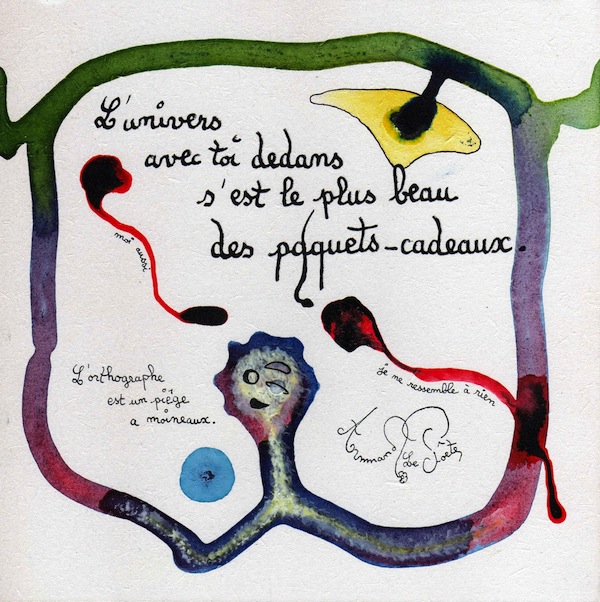 L'univers
avec toi dedans
s'est le plus beau
des paquets-cadeaux.
moi aussi
je ne ressemble à rien
L'orthographe
est un piège
a moineaux.
Armand Le Poète